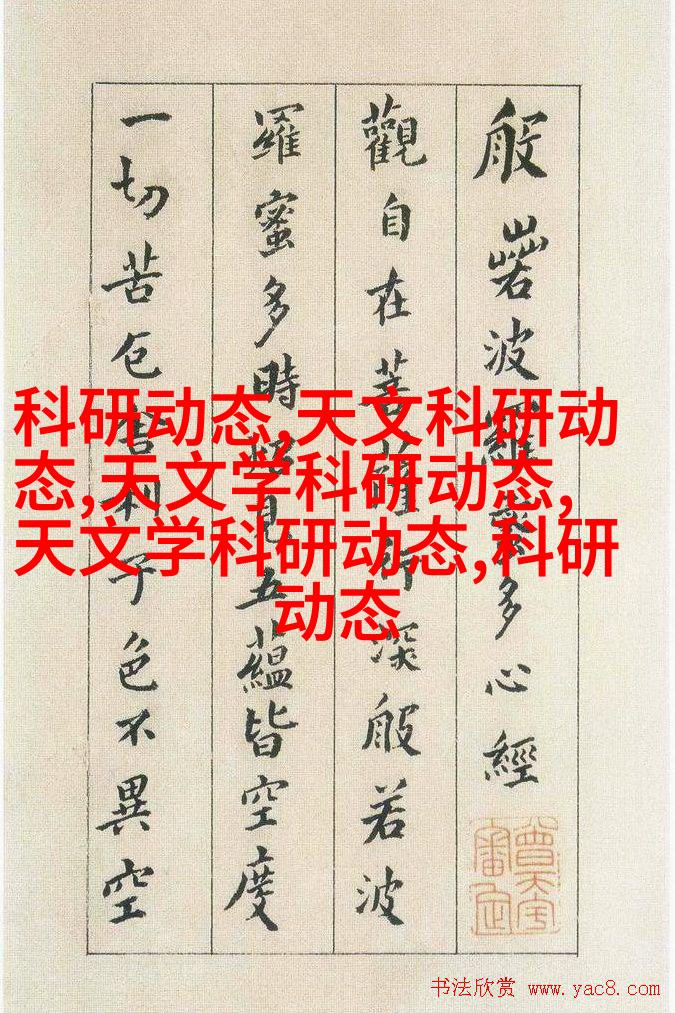 般若波羅蜜多心經
觀自在菩薩行深般若波
羅蜜多時照見五蘊皆空度
一切苦厄舍利子色不異空
科研动态,天文科研动
态,天文学科研动态,
天文学科研动态,科研
动态
书法欣赏 www.yac8.com